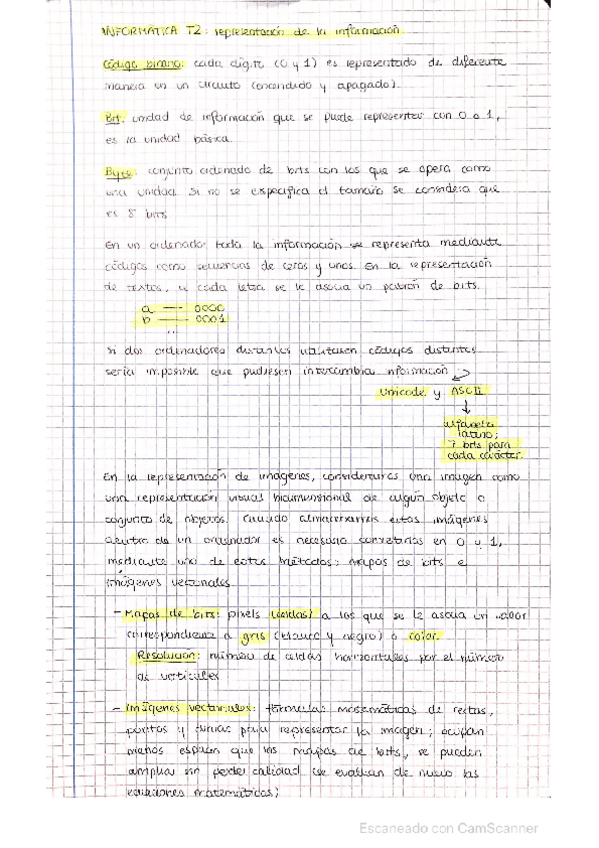 INFORMÁTICA T2: representación de la información.
Código binario: cada dígito (0 y 1) es representado de diferente
manera en un circuito (encendido y apagado).
Bit: unidad de información que se puede representar con 0 o 1,
es la unidad básica.
Byte: conjunto ordenado de bits con los que se opera como
una unidad. Si no se especifica el tamaño se considera que
es 8 bits
En un ordenador toda la información se representa mediante
códigos como secuencias de ceros y unos. En la representación
de textos, a cada letra se le asocia un patrón de bits.
a — 0000
b — 0001
...
Si dos ordenadores distantes utilizasen códigos distantes
sería imposible que pudiesen intercambia información
Unicode y ASCII
alfabeto
latino;
7 bits para
cada carácter.
En la representación de imágenes, consideramos una imagen como
una representación visual bidimensional de algún objeto o
conjunto de objetos. Cuando almacenamos estas imágenes
dentro de un ordenador es necesario convertirlas en 0 y 1,
mediante uno de estos métodos: mapas de bits e
imágenes vectoriales
- Mapas de bits: pixels (celdas) a los que se le asocia un color
correspondiente a gris (blanco y negro) o color.
Resolución: número de celdas horizontales por el número
de verticales
- Imágenes vectoriales: fórmulas matemáticas de rectas,
puntos y curvas para representar la imagen; ocupan
menos espacio que los mapas de bits, se pueden
ampliar sin perder calidad (se evalúan de nuevo las
ecuaciones matemáticas)
Escaneado con CamScanner